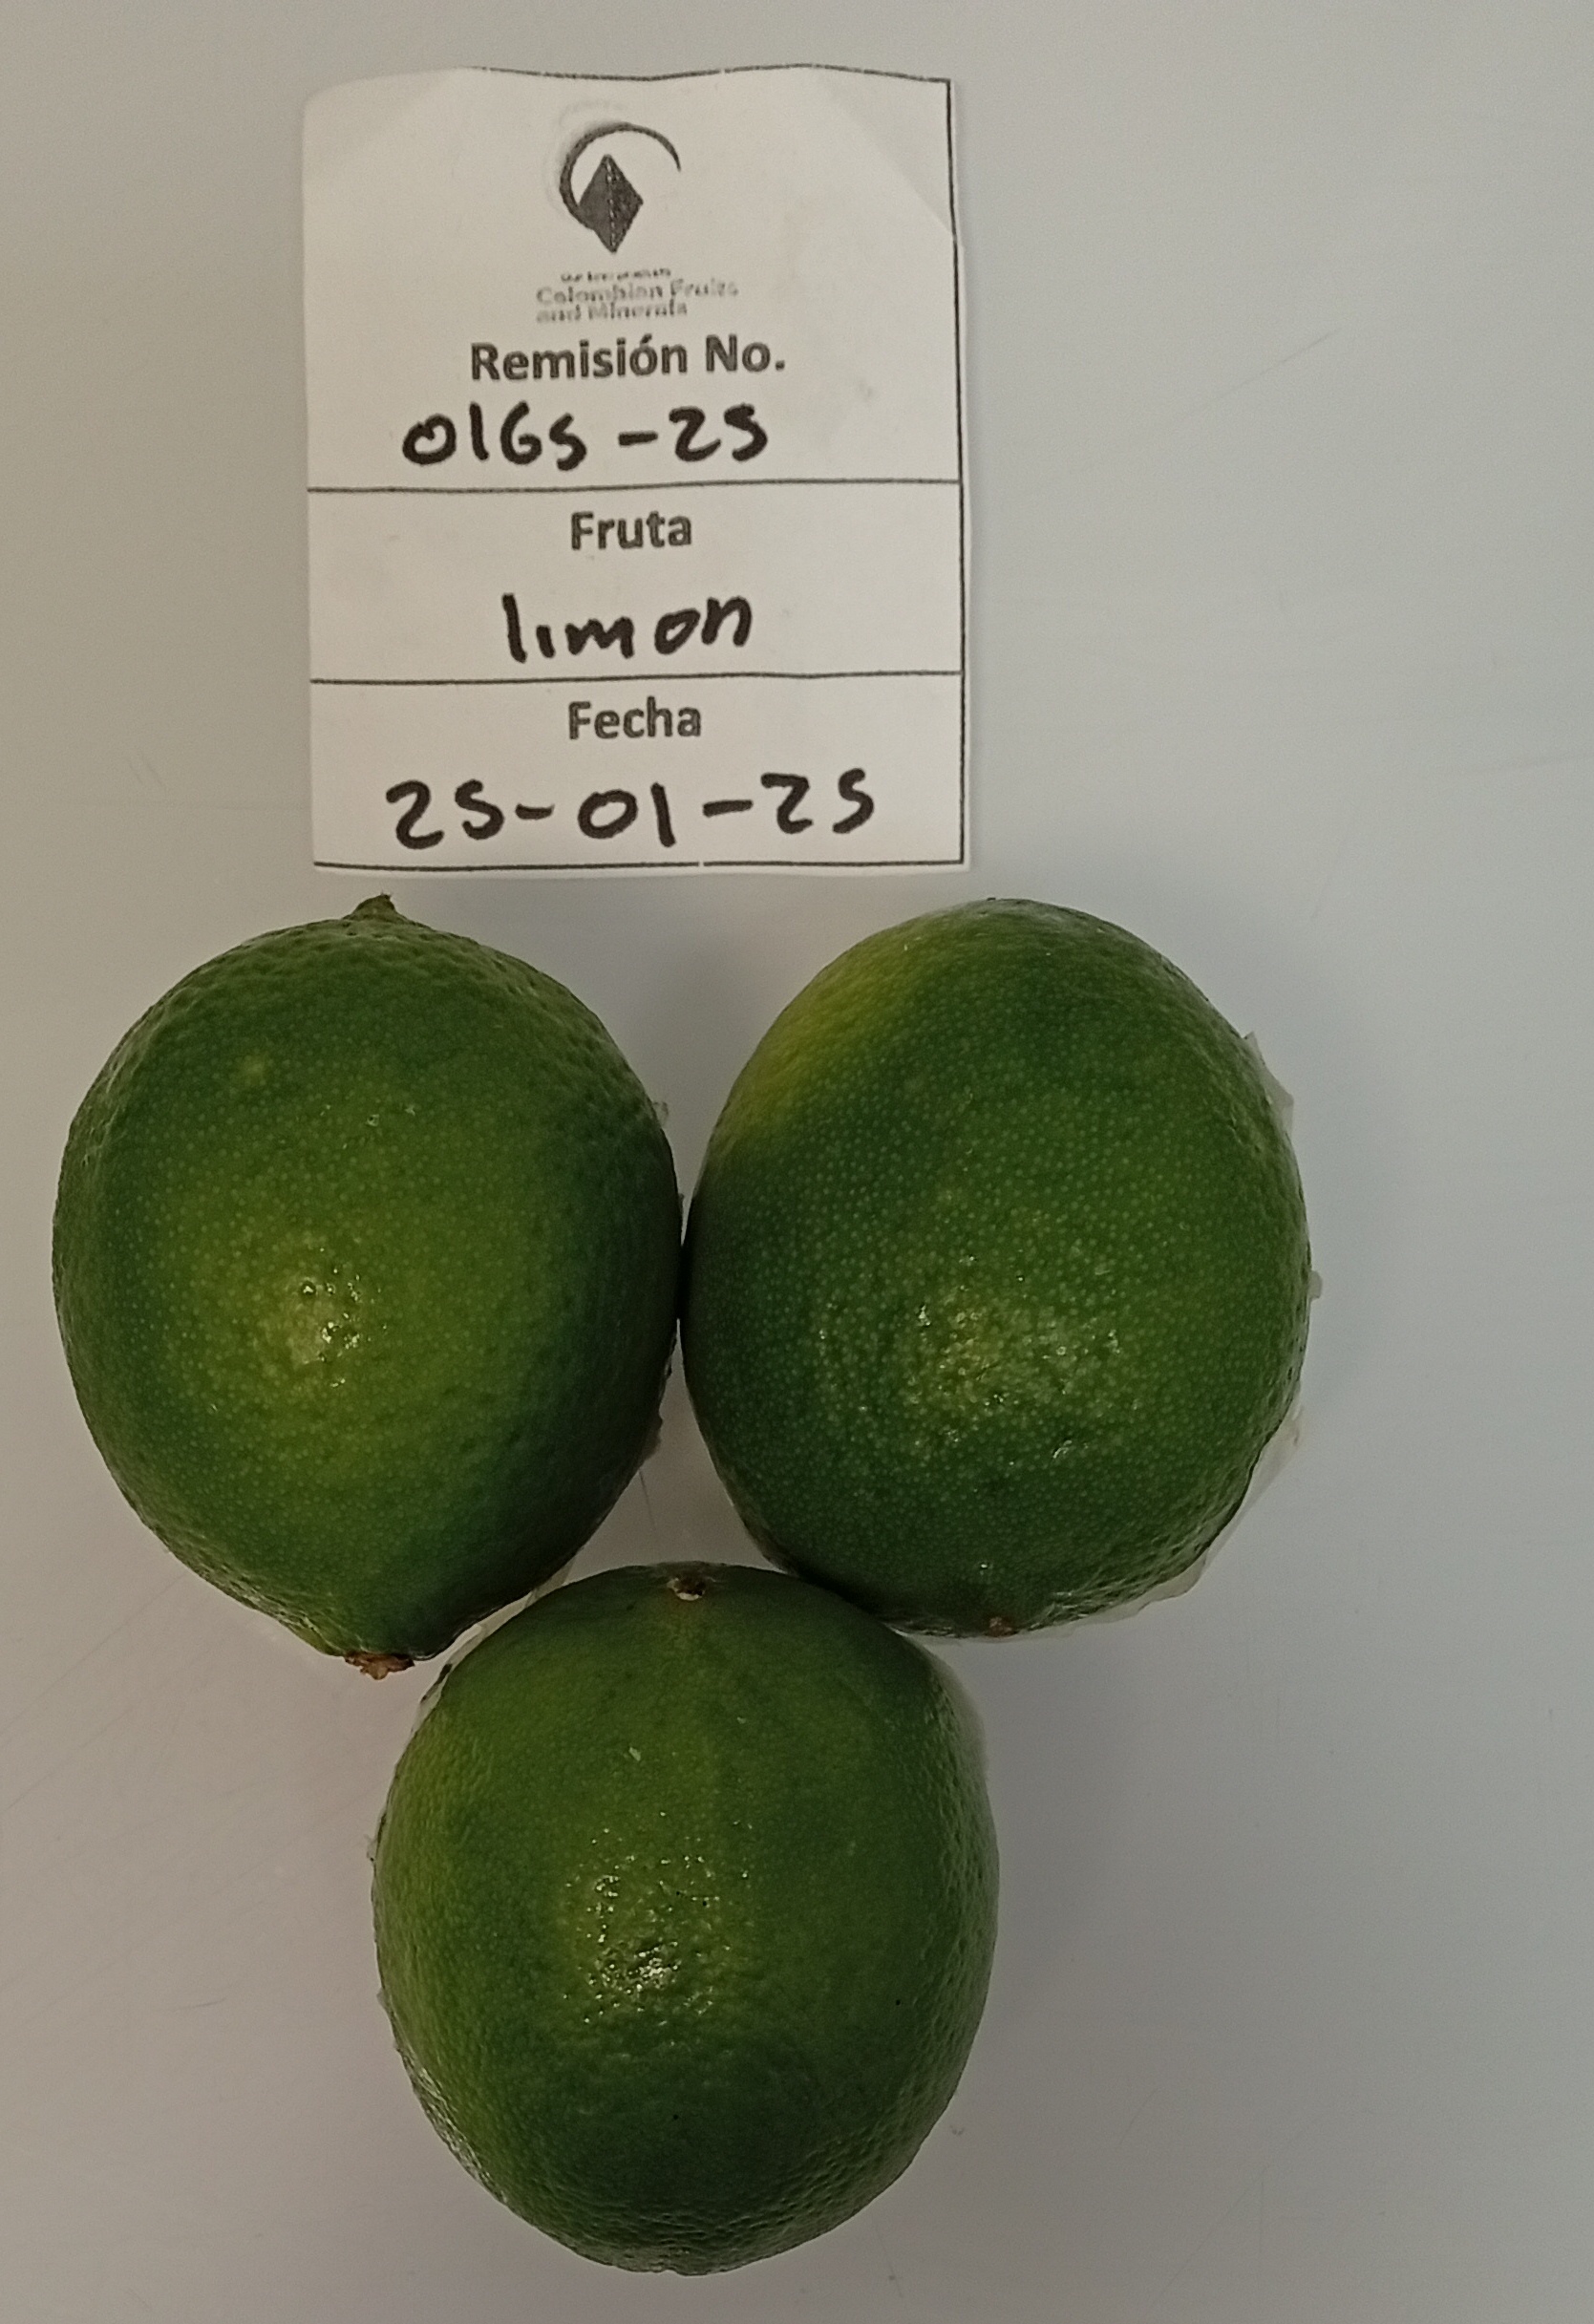 Colombian Fruits
and Minerals
Remisión No.
0165-25
Fruta
limon
Fecha
25-01-25